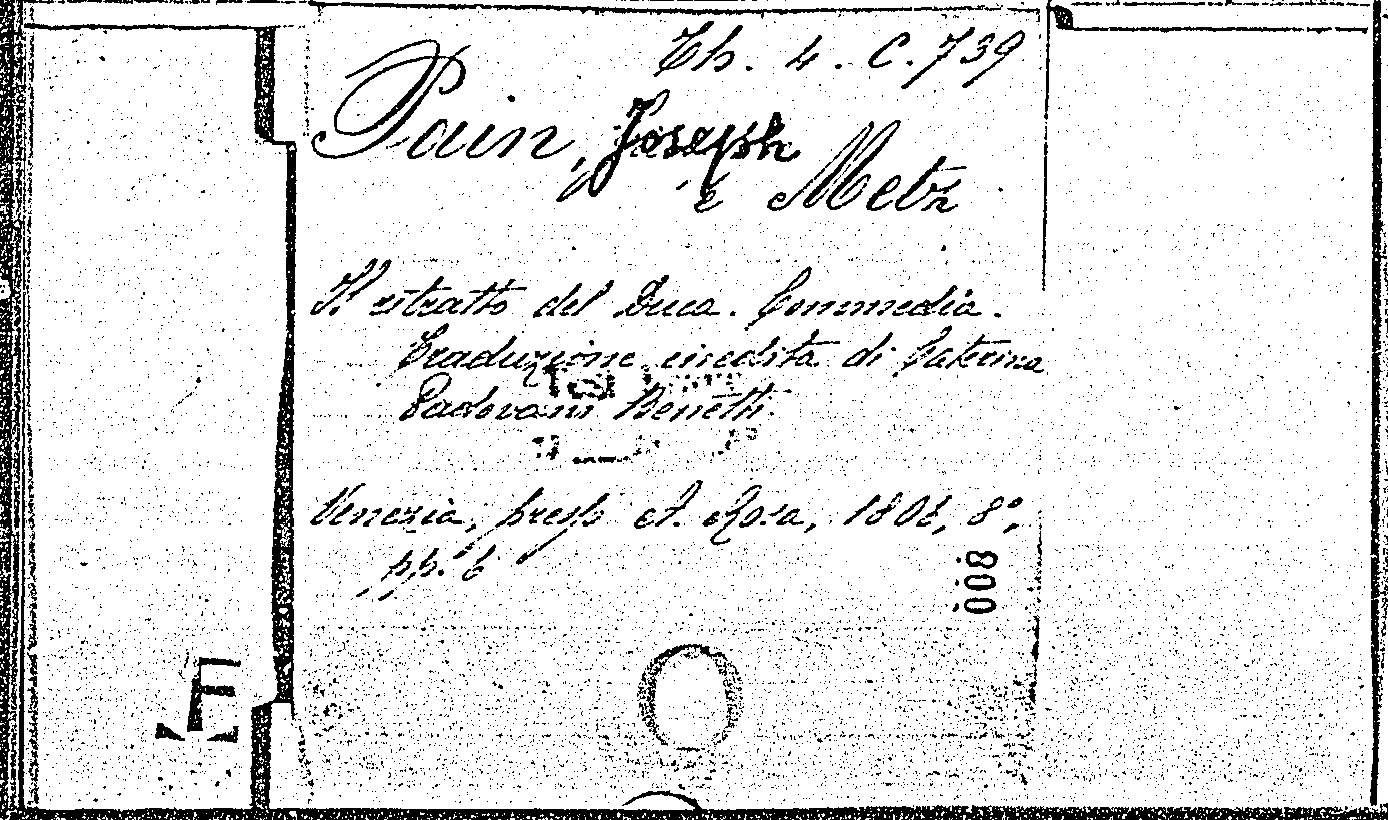 Th. 4. C. 739
Pain, Joseph
e Metz
Il ritratto del Duca. Commedia.
Traduzione inedita di Caterina
Padovani Benetti.
Venezia, presso A. Rosa, 1806, 8°,
pp. 6
008